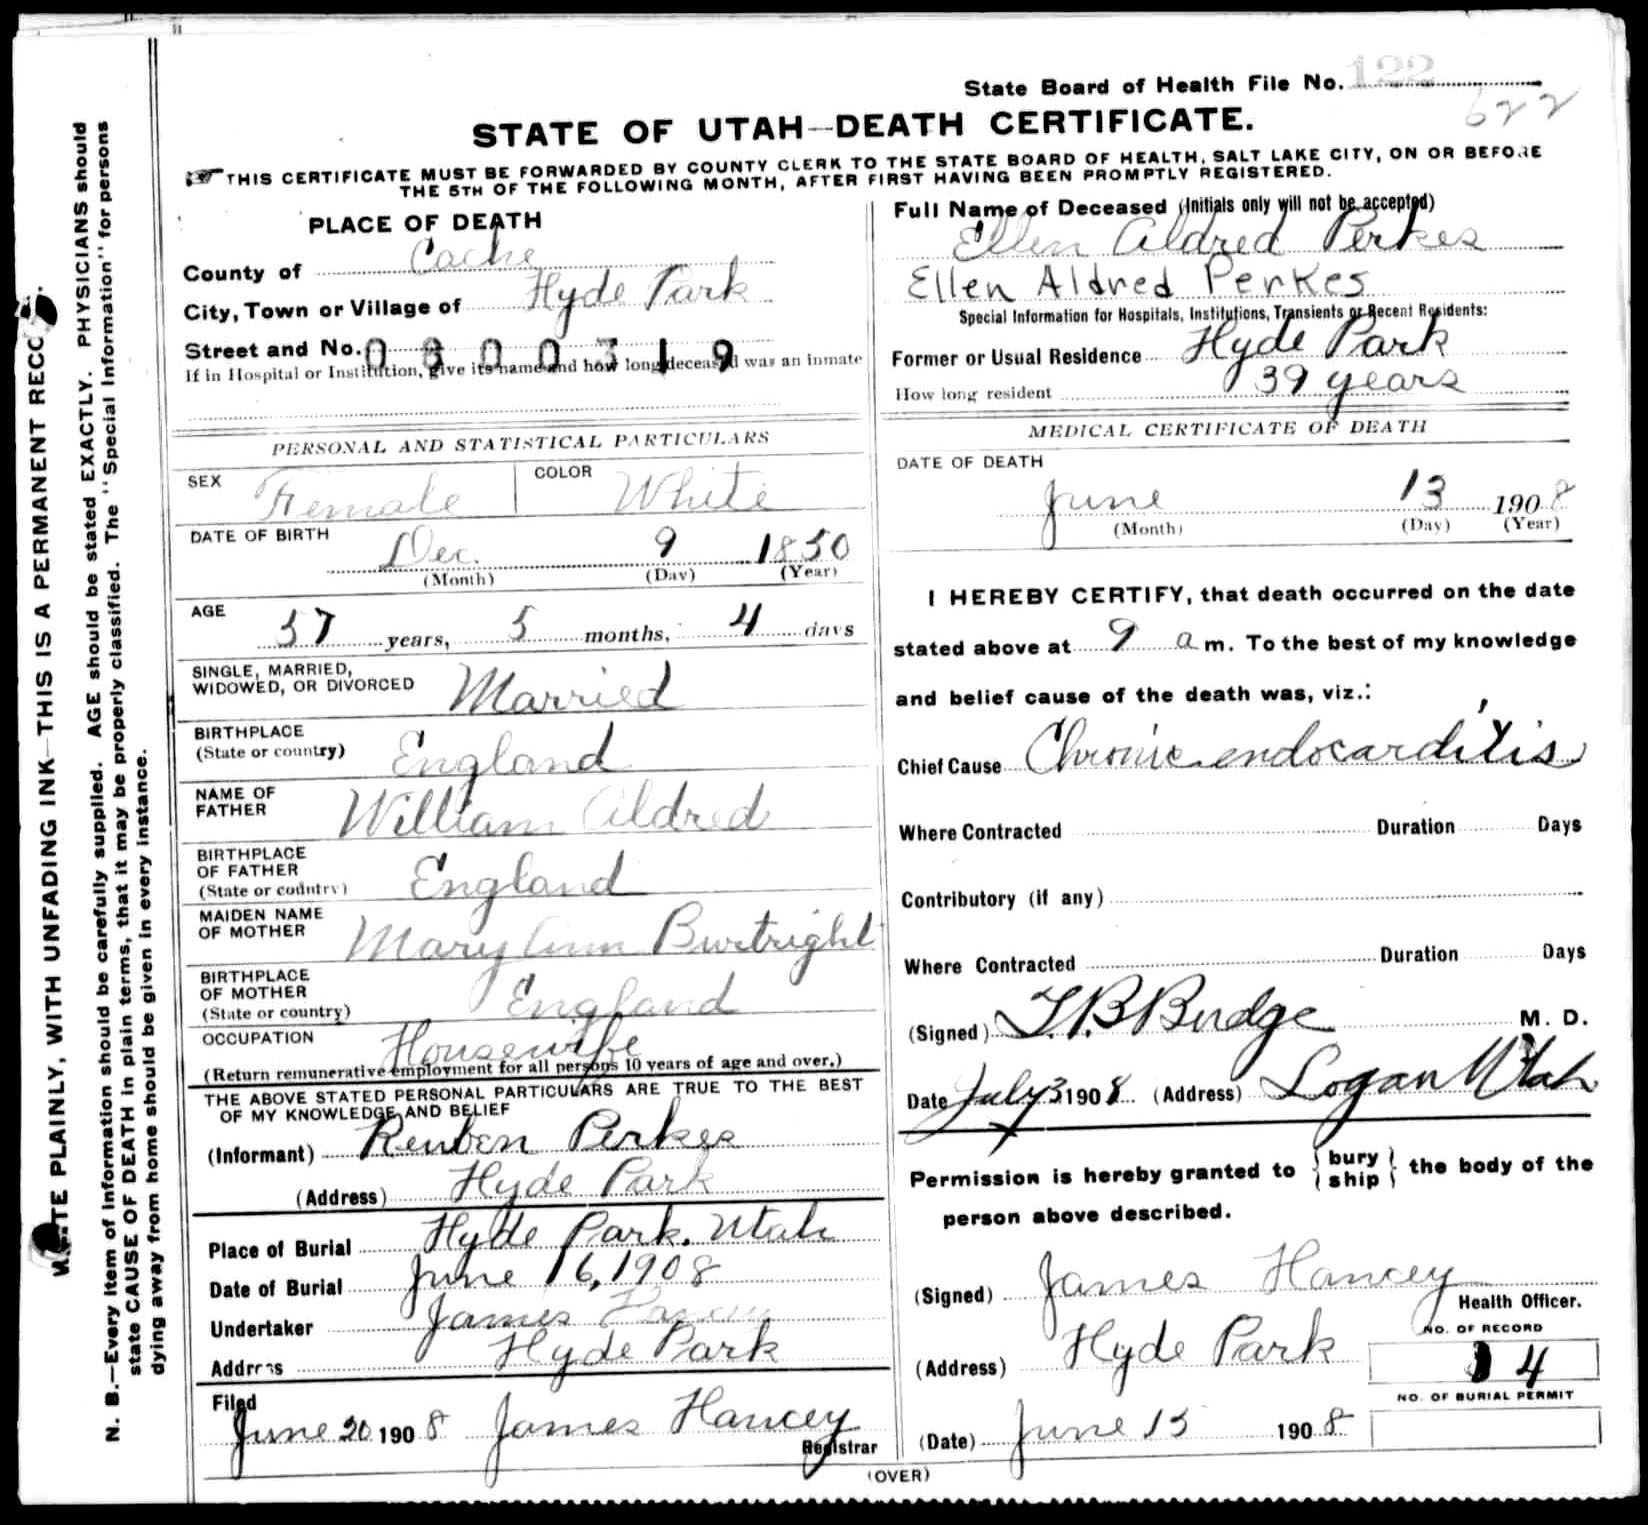 State Board of Health File No. 122
622
STATE OF UTAH—DEATH CERTIFICATE.
THIS CERTIFICATE MUST BE FORWARDED BY COUNTY CLERK TO THE STATE BOARD OF HEALTH, SALT LAKE CITY, ON OR BEFORE
THE 5TH OF THE FOLLOWING MONTH, AFTER FIRST HAVING BEEN PROMPTLY REGISTERED.
PLACE OF DEATH
County of Cache
City, Town or Village of Hyde Park
Street and No. 0300319
If in Hospital or Institution, give its name and how long deceased was an inmate
Full Name of Deceased (Initials only will not be accepted)
Ellen Aldred Perkes
Ellen Aldred Perkes
Special Information for Hospitals, Institutions, Transients or Recent Residents:
Former or Usual Residence Hyde Park
How long resident 39 years
PERSONAL AND STATISTICAL PARTICULARS
SEX Female COLOR White
DATE OF BIRTH Dec. 9 1850
(Month) (Day) (Year)
AGE 57 years, 5 months, 4 days
SINGLE, MARRIED,
WIDOWED, OR DIVORCED Married
BIRTHPLACE
(State or country) England
NAME OF
FATHER William Aldred
BIRTHPLACE
OF FATHER
(State or country) England
MAIDEN NAME
OF MOTHER Mary Ann Burtright
BIRTHPLACE
OF MOTHER
(State or country) England
OCCUPATION Housewife
(Return remunerative employment for all persons 10 years of age and over.)
THE ABOVE STATED PERSONAL PARTICULARS ARE TRUE TO THE BEST
OF MY KNOWLEDGE AND BELIEF
(Informant) Reuben Perkes
(Address) Hyde Park
Place of Burial Hyde Park, Utah
Date of Burial June 16, 1908
Undertaker James
Address Hyde Park
Filed
June 20 1908 James Hancey
Registrar
MEDICAL CERTIFICATE OF DEATH
DATE OF DEATH
June 13 1908
(Month) (Day) (Year)
I HEREBY CERTIFY, that death occurred on the date
stated above at 9 a m. To the best of my knowledge
and belief cause of the death was, viz.:
Chief Cause Chronic endocarditis
Where Contracted Duration Days
Contributory (if any)
Where Contracted Duration Days
(Signed) T.B Budge M. D.
Date July 3 1908 (Address) Logan Utah
Permission is hereby granted to { bury
ship } the body of the
person above described.
(Signed) James Hancey
Health Officer.
(Address) Hyde Park
NO. OF RECORD
14
NO. OF BURIAL PERMIT
(Date) June 15 1908
(OVER)
WRITE PLAINLY, WITH UNFADING INK—THIS IS A PERMANENT RECO
N. B.—Every item of information should be carefully supplied. AGE should be stated EXACTLY. PHYSICIANS should
state CAUSE OF DEATH in plain terms, that it may be properly classified. The "Special Information" for persons
dying away from home should be given in every instance.